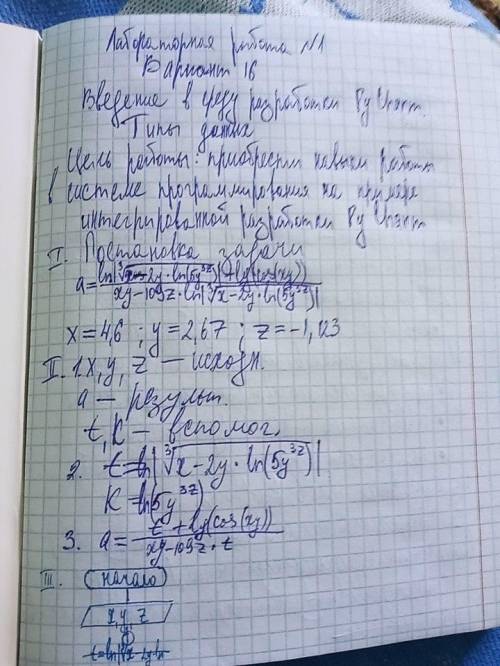 Лабораторная работа №1
Вариант 16
Введение в среду разработки PyCharm.
Типы данных
Цель работы: приобрести навыки работы
в системе программирования на примере
интегрированной разработки PyCharm
I. Постановка задачи
a = (ln|∛(x-2y·ln(5y^3z))| + lg(cos(xy))) / (xy-109z·ln|∛(x-2y·ln(5y^3z))|)
x=4,6 ; y=2,67 ; z=-1,123
II. 1. x, y, z — исходн.
a — результ.
t, K — вспомог.
2. t=ln|∛(x-2y·ln(5y^3z))|
K=ln(5y^3z)
3. a = (t+lg(cos(xy))) / (xy-109z·t)
III. начало
x, y, z